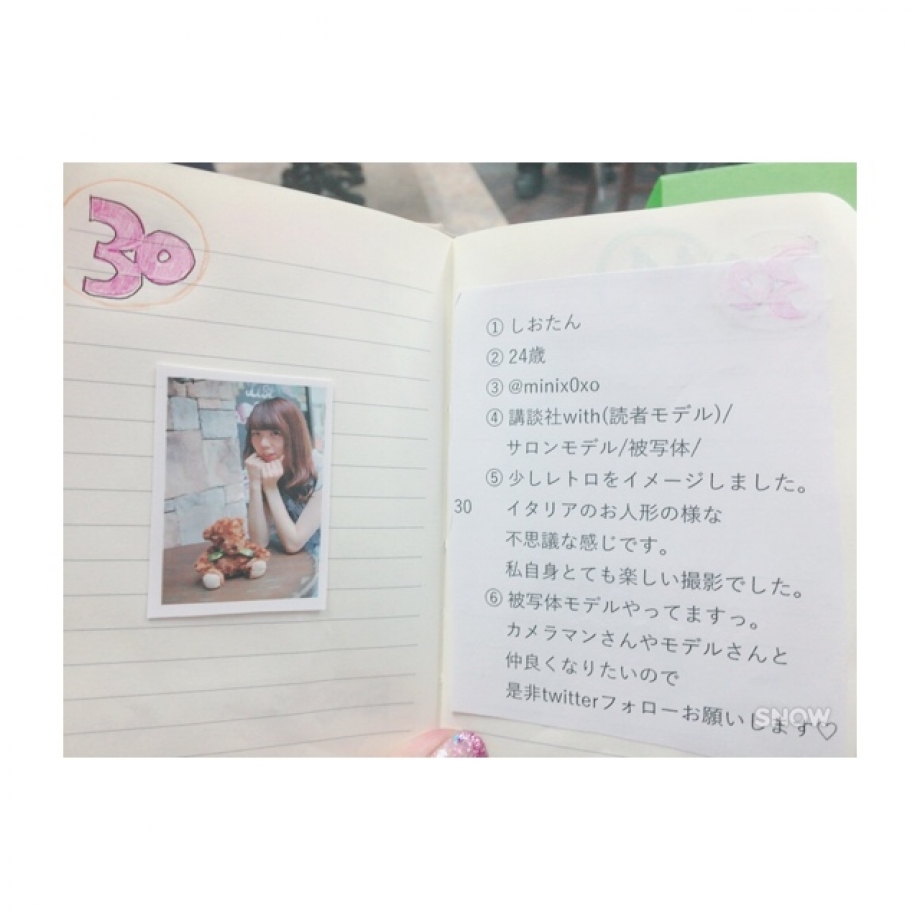 30
① しおたん
② 24歳
③ @minix0xo
④ 講談社with(読者モデル)/
サロンモデル/被写体/
⑤ 少しレトロをイメージしました。
30
イタリアのお人形の様な
不思議な感じです。
私自身とても楽しい撮影でした。
⑥ 被写体モデルやってますっ。
カメラマンさんやモデルさんと
仲良くなりたいので
是非twitterフォローお願いします♡
SNOW